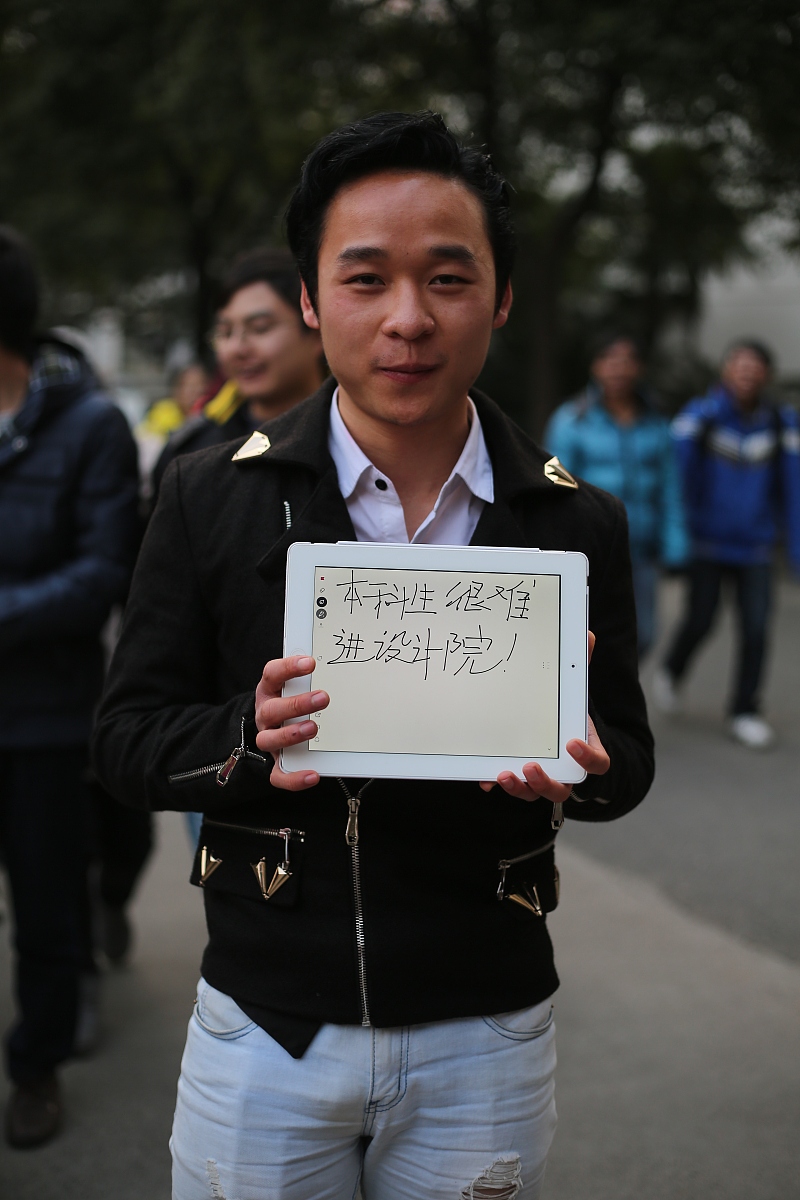 本科生很难
进设计院！